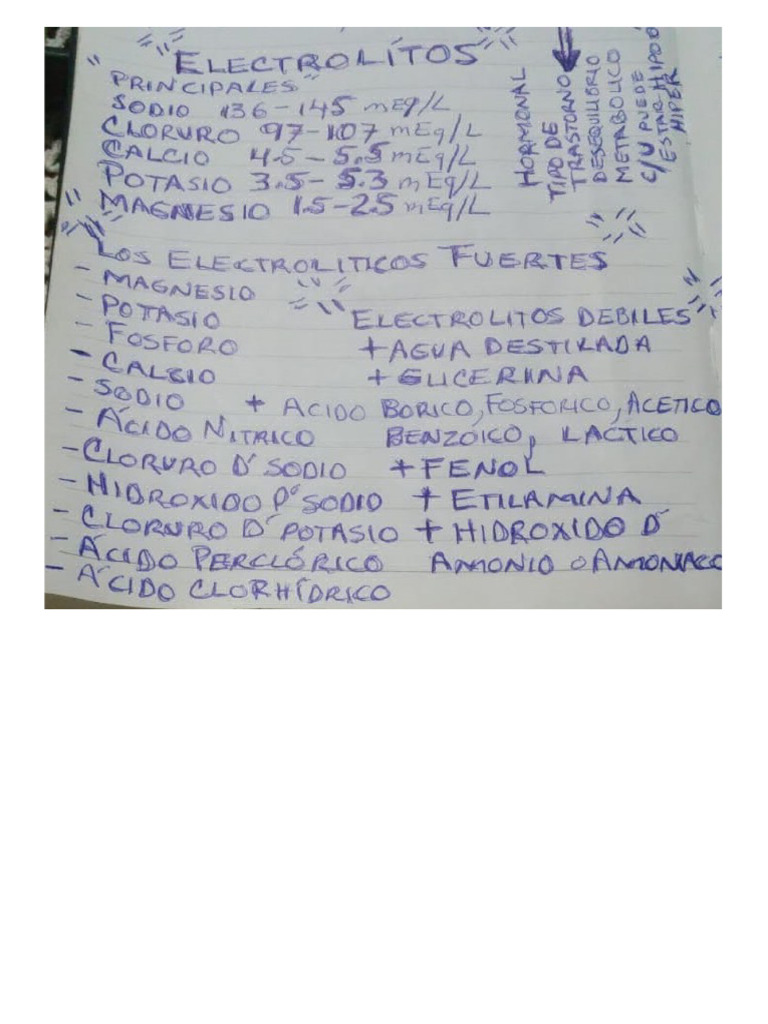 "ELECTROLÍTOS"
"PRINCIPALES"
SODIO 136-145 mEq/L
CLORURO 97-107 mEq/L
CALCIO 4.5-5.5 mEq/L
POTASIO 3.5-5.3 mEq/L
MAGNESIO 1.5-2.5 mEq/L
HORMONAL
TIPO DE
TRASTORNO
DESEQUILIBRIO
METABOLICO
C/U PUEDE
ESTAR HIPO O
HIPER
LOS ELECTROLITICOS FUERTES
- MAGNESIO
- POTASIO
- FOSFORO
- CALCIO
- SODIO
- ÁCIDO NITRICO
- CLORURO D' SODIO
- HIDROXIDO D' SODIO
- CLORURO D' POTASIO
- ÁCIDO PERCLÓRICO
- ÁCIDO CLORHÍDRICO
"ELECTROLITOS DEBILES"
+ AGUA DESTILADA
+ GLICERINA
+ ACIDO BORICO, FOSFORICO, ACETICO
BENZOICO, LACTICO
+ FENOL
+ ETILAMINA
+ HIDROXIDO D'
AMONIO O AMONIACO